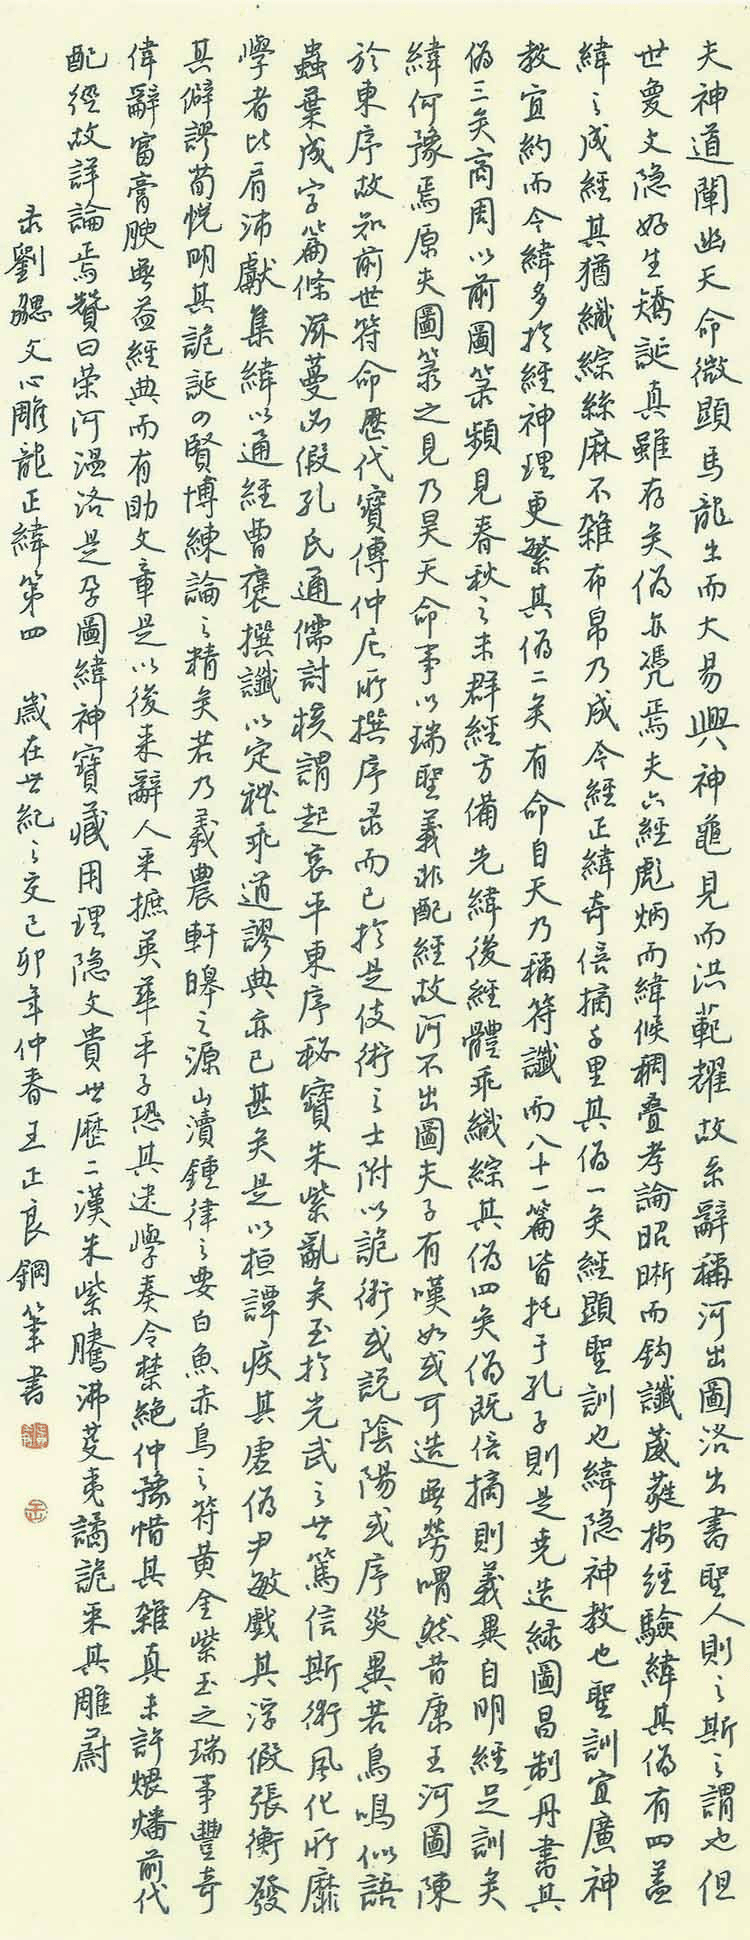 夫神道闡幽天命微顯馬龍出而大易興神龜見而洪範耀故系辭稱河出圖洛出書聖人則之斯之謂也但
世敻文隐好生矯誕真雖存矣偽亦凴焉夫六經彪炳而緯候稠叠孝論昭晰而鈎讖葳蕤按經驗緯其偽有四蓋
緯之成經其猶織綜絲麻不雜布帛乃成今經正緯奇倍摘千里其偽一矣經顯聖訓也緯隐神教也聖訓宜廣神
教宜約而今緯多於經神理更繁其偽二矣有命自天乃稱符讖而八十一篇皆托于孔子則是堯造緑圖昌制丹書其
偽三矣商周以前圖箓頻見春秋之末群經方備先緯後經體乖織綜其偽四矣偽既倍摘則義異自明經足訓矣
緯何豫焉原夫圖箓之見乃昊天命事以瑞聖義非配經故河不出圖夫子有嘆如或可造無勞喟然昔康王河圖陳
於東序故知前世符命歷代寶傳仲尼所撰序录而已於是伎術之士附以詭術或説陰陽或序災異若鳥鳴似語
蟲葉成字篇條滋蔓必假孔氏通儒討核謂起哀平東序秘寶朱紫亂矣至於光武之世篤信斯術風化所靡
學者比肩沛獻集緯以通經曹褒撰讖以定禮乖道謬典亦已甚矣是以桓譚疾其虛偽尹敏戲其浮假張衡發
其僻謬荀悦明其詭誕四賢博練論之精矣若乃羲農軒皞之源山瀆鍾律之要白魚赤烏之符黃金紫玉之瑞事豐奇
偉辭富膏腴無益經典而有助文章是以後来辭人采摭英華平子恐其迷學奏令禁絶仲豫惜其雜真未許煨燔前代
配經故詳論焉贊曰榮河温洛是孕圖緯神寶藏用理隐文貴世歷二漢朱紫騰沸芟夷譎詭采其雕蔚
录劉勰文心雕龍正緯第四 歲在世紀之交己卯年仲春王正良鋼筆書